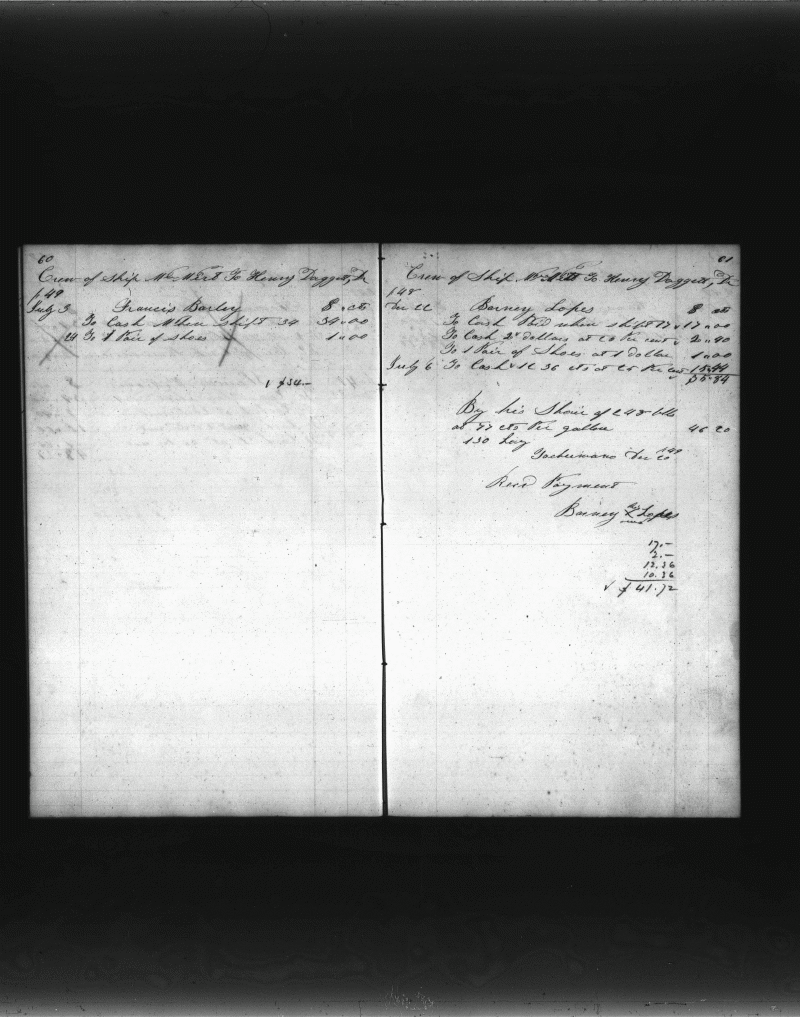 60
Crew of Ship Wm Wirt To Henry Daggett, Dr
1849
July 3 Francis Barley $ cts
To Cash when Shipt 34 34.00
24 To 1 Pair of Shoes 1.00
1 $34.–
61
Crew of Ship Wm Wirt To Henry Daggett, Dr
1848
Dec 22 Barney Lopes $ cts
To Cash when shipt 17 17.00
To Cash 2 dollars at 20 Per cent 2.40
To 1 Pair of Shoes at 1 dollar 1.00
July 6 To Cash 12 36 cts at 25 Per cent 15.44
35.84
By his Share of 248 bbls
at 77 cts Per gallon 46 20
130 Lay
Dec 20
Recd Payment
Barney X Lopes
17.–
2.–
12.36
10.36
$41.72